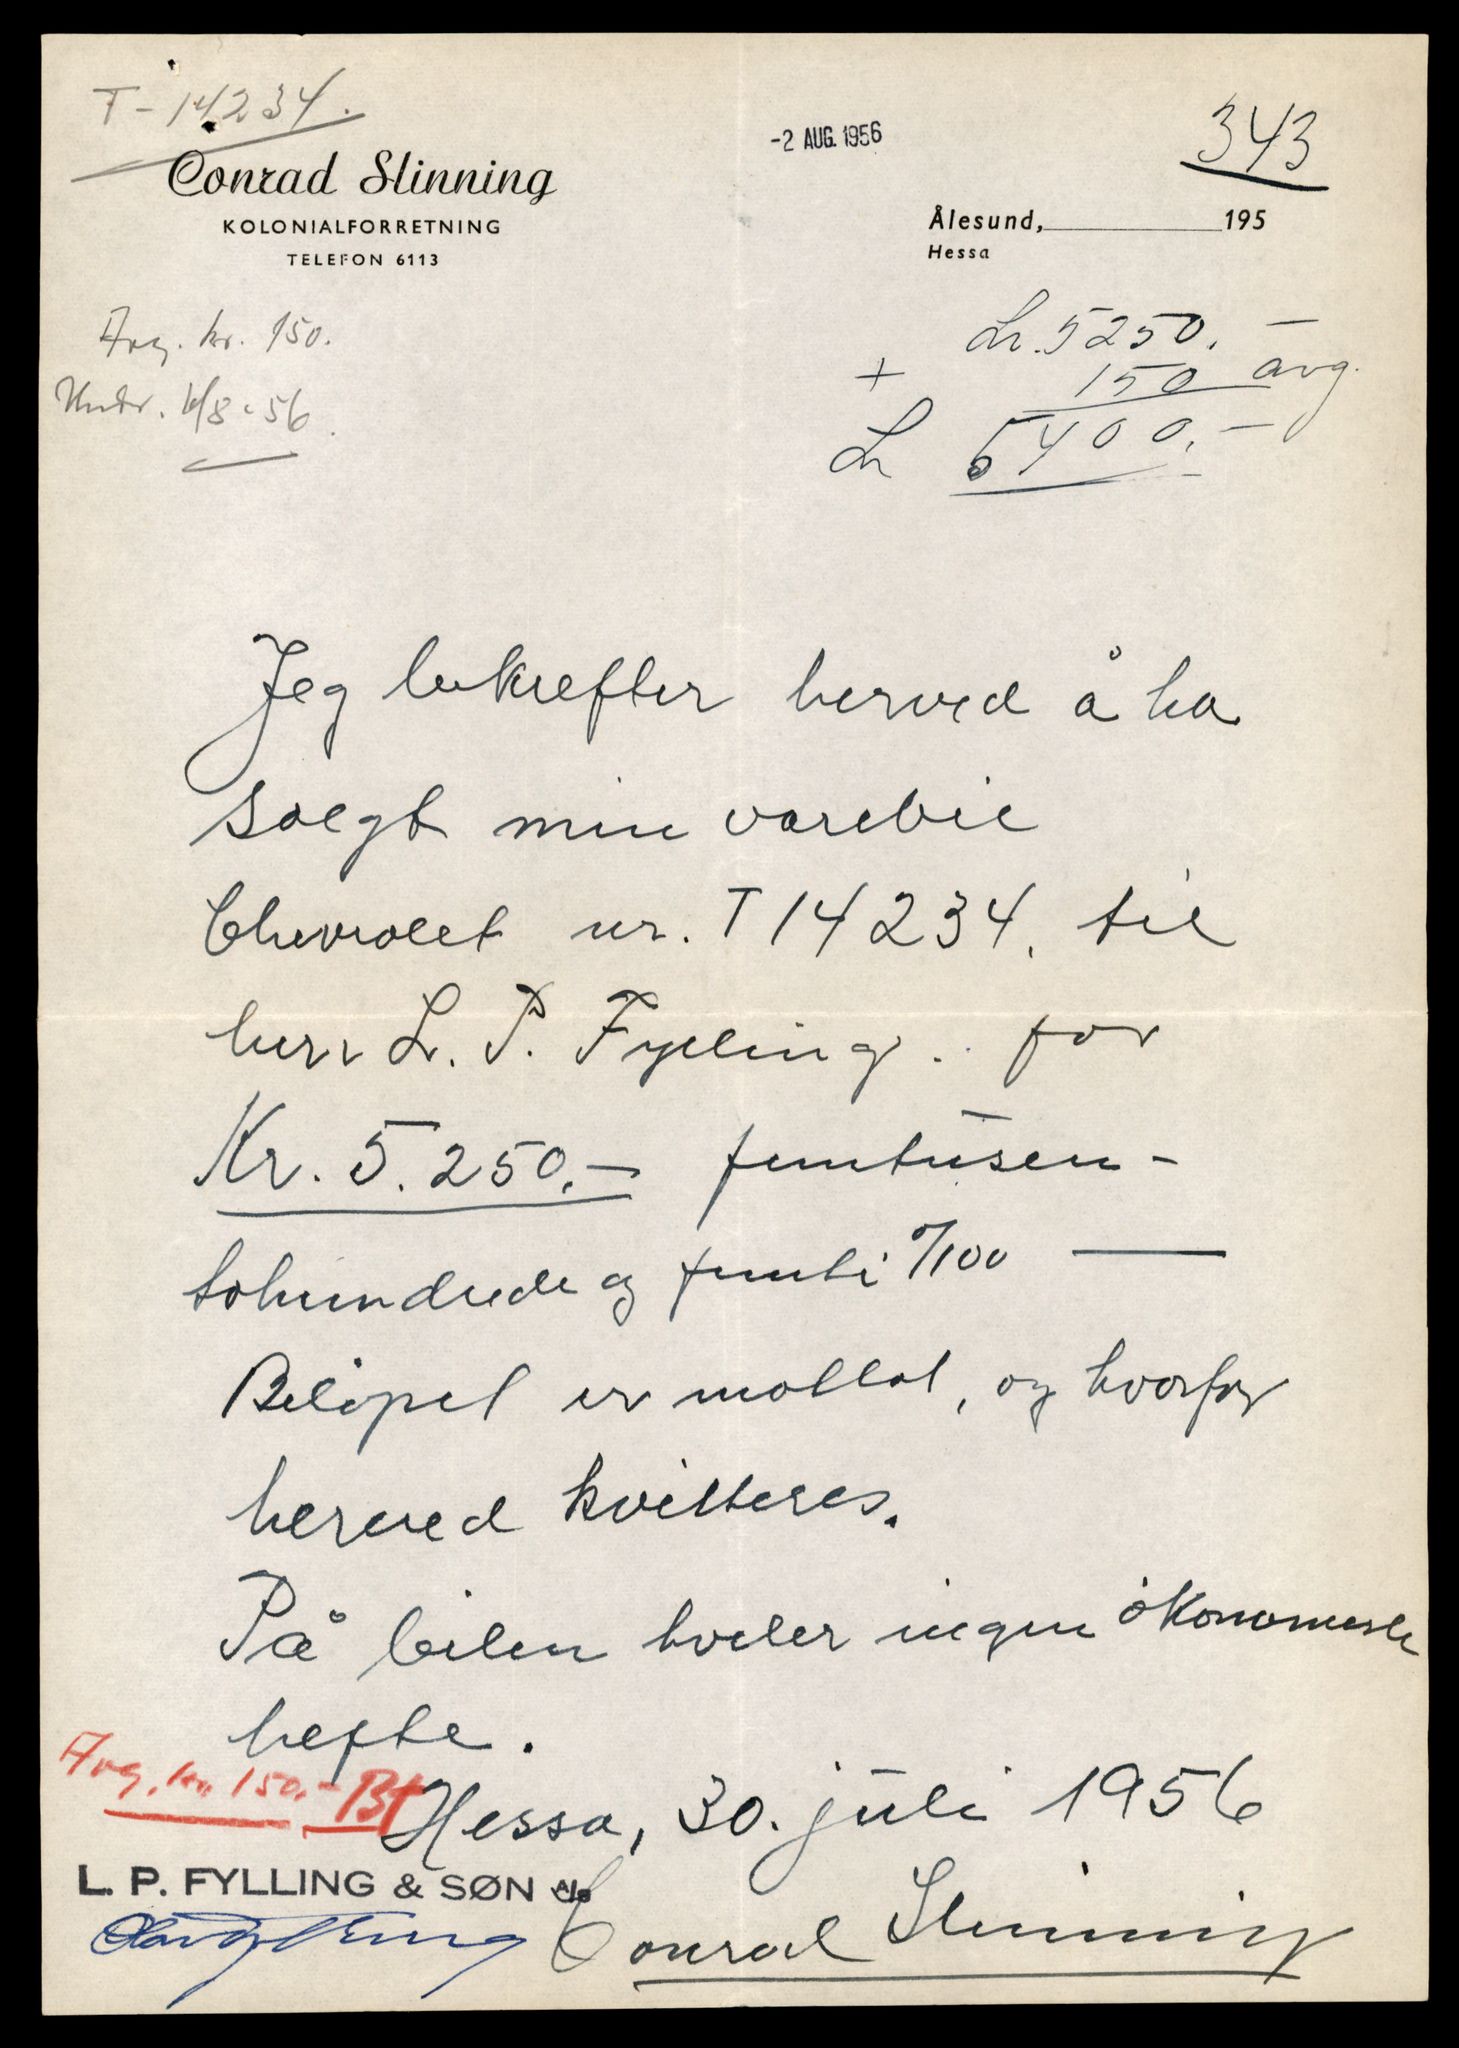 T-14234.
-2 AUG. 1956
343
Conrad Slinning
KOLONIALFORRETNING
TELEFON 6113
Ålesund, 195
Hessa
Avg. kr. 150.
/8-56.
kr. 5250.-
+ 150 avg.
kr 5400.-
Jeg bekrefter herved å ha
solgt min varebil
Chevrolet nr. T 14234. til
herr L. P. Fylling. for
Kr. 5.250.- femtusen-
tohundrede og femti 0/100 —
Beløpet er mottat, og hvorfor
herved kvitteres.
På bilen hviler ingen økonomisk
hefte.
Avg. kr. 150.- Bt
Hessa, 30. juli 1956
L. P. FYLLING & SØN A/S
Conrad Slinning